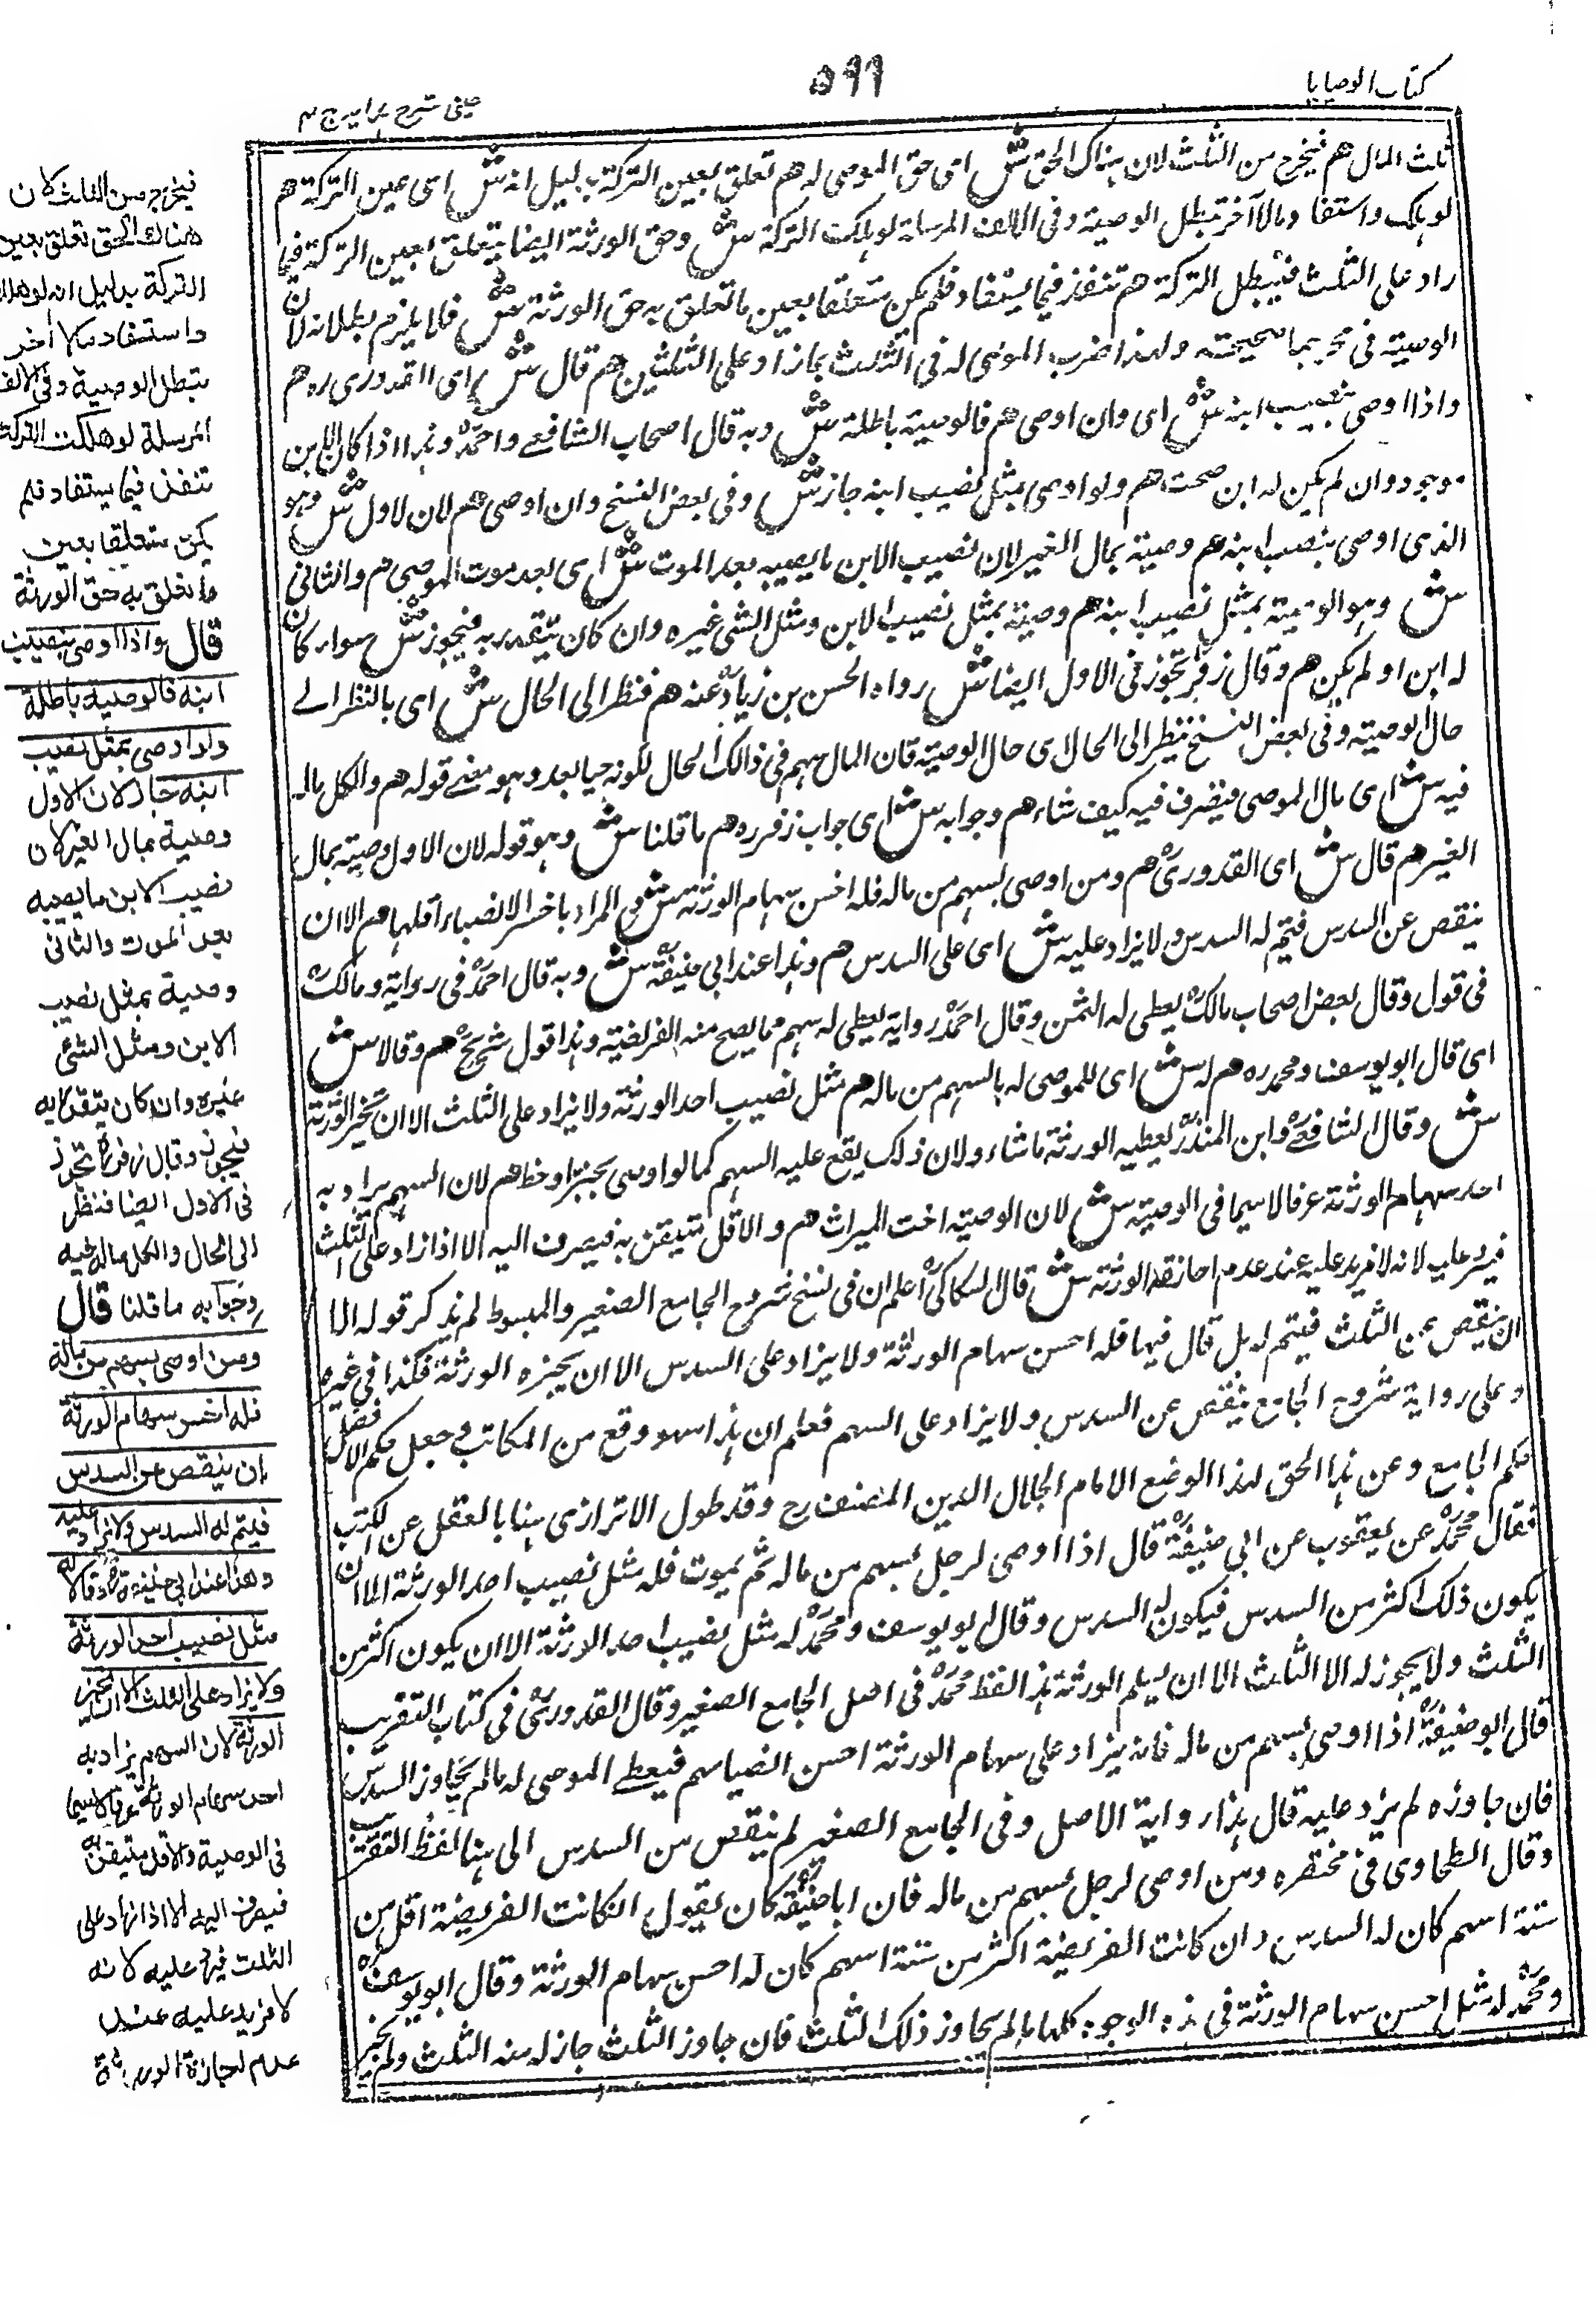 كتاب الوصايا
٥٩٩
عینی شرح ہدایہ ج ٤
ثلث المال هم فيخرج من الثلث لان هناك الحق ش اى حق الموصى له هم تعلق بعين التركة بدليل انه ش اى عين التركة هم
لو هلك واستفاد مالا آخر تبطل الوصية وفى الالف المرسلة لو هلكت التركة ش وحق الورثة ايضا يتعلق بعين التركة فيما
زاد على الثلث فتبطل التركة هم تنفذ فيما يستفاد فلم يكن متعلقا بعين ما تعلق به حق الورثة ش فلا يلزم بطلانه لان
الوصية فى مخرجها صحيحة ولهذا ضرب الموصى له فى الثلث بما زاد على الثلثين هم قال ش اى القدورى ره هم
واذا اوصى بنصيب ابنه ش اى وان اوصى هم فالوصية باطلة ش وبه قال اصحاب الشافعى واحمد وهذا اذا كان الابن
موجود وان لم يكن له ابن صحت هم ولو اوصى بمثل نصيب ابنه جاز ش وفى بعض النسخ وان اوصى هم لان الاول ش وهو
الذى اوصى بنصيب ابنه هم وصية بمال الغير لان نصيب الابن ما يصيبه بعد الموت ش اى بعد موت الموصى هم والثانى
ش وهو الوصية بمثل نصيب ابنه هم وصية بمثل نصيب الابن ومثل الشئ غيره وان كان يتقدر به فيجوز ش سواء كان
له ابن او لم يكن هم وقال زفر تجوز فى الاول ايضا ش رواه الحسن بن زياد عنه هم فنظر الى الحال ش اى بالنظر الے
حال الوصية وفى بعض النسخ ينظر الى الحال اى حال الوصية فان المال لهم فى ذالك الحال لكونه حيا بعد وهو معنے قوله هم والكل ماله
فيه ش اى مال الموصى فيتصرف فيه كيف شاء هم وجوابه ش اى جواب زفر ره هم ما قلنا ش وهو قوله لان الاول وصية بمال
الغير هم قال ش اى القدورى هم ومن اوصى بسهم من ماله فله اخس سهام الورثة ش والمراد باخس الانصباء اقلها هم الا ان
ينقص عن السدس فيتم له السدس ولا يزاد عليه ش اى على السدس هم وهذا عند ابى حنيفة ش وبه قال احمد فى رواية ومالك
فى قول وقال بعض اصحاب مالك يعطى له الثمن وقال احمد رواية يعطى له سهم مما يصح منه الفريضة وهذا قول شريح هم وقالا ش
اى قال ابو يوسف ومحمد ره هم له ش اى للموصى له بالسهم من ماله هم مثل نصيب احد الورثة ولا يزاد على الثلث الا ان يجيز الورثة
ش وقال الشافعى وابن المنذر يعطيه الورثة ما شاء ولان ذلك يقع عليه السهم كما لو اوصى بجزء او حظ هم لان السهم يراد به
احد سهام الورثة عرفا لا سيما فى الوصية ش لان الوصية اخت الميراث هم والاقل متيقن به فيصرف اليه الا اذا زاد على الثلث
فيرد عليه لانه لا مزيد عليه عند عدم اجازة الورثة ش قال السكاكى اعلم ان فى نسخ شروح الجامع الصغير والمبسوط لم يذكر قوله الا
ان ينقص عن الثلث فيتم له بل قال فيها فله احسن سهام الورثة ولا يزاد على السدس الا ان يجيزه الورثة فكذا فى غيره
وعلى رواية شروح الجامع ينقص عن السدس ولا يزاد على السهم فعلم ان هذا سهو وقع من الكاتب وجعل حكم الاصل
حكم الجامع وعن هذا الحق لهذا الوضع الامام الجلال الدين المصنف رح وقد طول الاترازى هنا بالعقل عن الكتب
فقال محمد عن يعقوب عن ابى حنيفة قال اذا اوصى لرجل بسهم من ماله ثم يموت فله مثل نصيب احد الورثة الا ان
يكون ذلك اكثر من السدس فيكون له السدس وقال ابو يوسف ومحمد له مثل نصيب احد الورثة الا ان يكون اكثر من
الثلث ولا يجوز له الا الثلث الا ان يسلم الورثة هذا لفظ محمد فى اصل الجامع الصغير وقال القدورى فى كتاب التقريب
قال ابو حنيفة اذا اوصى بسهم من ماله فانه يزاد على سهام الورثة احسن انصبائهم فيعطے الموصى له ما لم يجاوز السدس
فان جاوزه لم يزد عليه قال هذا رواية الاصل وفى الجامع الصغير لم ينقص من السدس الى هنا لفظ التقريب
وقال الطحاوى فى مختصره ومن اوصى لرجل بسهم من ماله فان ابا حنيفة كان يقول ان كانت الفريضة اقل من
ستة اسهم كان له السدس وان كانت الفريضة اكثر من ستة اسهم كان له احسن سهام الورثة وقال ابو يوسف
ومحمد له مثل احسن سهام الورثة فى هذه الوجوه كلها ما لم يجاوز ذلك الثلث فان جاوز الثلث جاز له منه الثلث ولم يجز
فيخرج من الثلث كان
هناك الحق تعلق بعين
التركة بدليل انه لو هلك
واستفاد مالا آخر
تبطل الوصية وفى الالف
المرسلة لو هلكت التركة
تنفذ فيما يستفاد فلم
يكن متعلقا بعين
ما تعلق به حق الورثة
قال واذا اوصى بنصيب
ابنه فالوصية باطلة
ولو اوصى بمثل نصيب
ابنه جاز لان الاول
وصية بمال الغير لان
نصيب الابن ما يصيبه
بعد الموت والثانى
وصية بمثل نصيب
الابن ومثل الشئ
غيره وان كان يتقدر به
فيجوز وقال زفر تجوز
فى الاول ايضا فنظر
الى الحال والكل ماله فيه
وجوابه ما قلنا قال
ومن اوصى بسهم من ماله
فله اخس سهام الورثة
الا ان ينقص عن السدس
فيتم له السدس ولا يزاد عليه
وهذا عند ابى حنيفة وقالا له
مثل نصيب احد الورثة
ولا يزاد على الثلث الا ان يجيز
الورثة لان السهم يراد به
احد سهام الورثة عرفا لا سيما
فى الوصية والاقل متيقن به
فيصرف اليه الا اذا زاد على
الثلث فيرد عليه لانه
لا مزيد عليه عند
عدم اجازة الورثة